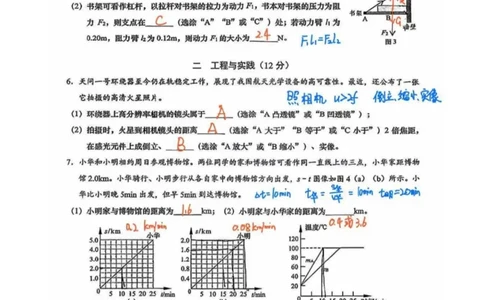 (2) 书架可看作杠杆，以拉杆对书架的拉力为动力 F₁，书本对书架的压力为阻
力 F₂，则支点在 C （选涂“A”“B”或“C”）处；若动力臂 l₁ 为
0.20m，阻力臂 l₂ 为 0.12m，则动力 F₁ 的大小为 24 N。
F₁l₁=F₂l₂
A
F₂
图 3
二 工程与实践（12 分）
6. 天问一号环绕器至今仍在轨稳定工作，展现了我国航天光学设备的高可靠性。最近，还公布了一张
它拍摄的高清火星照片。
照相机 u>2f 倒立、缩小、实像
(1) 环绕器上高分辨率相机的镜头属于 A （选涂“A 凸透镜”或“B 凹透镜”）；
(2) 拍摄时，火星到相机镜头的距离 A （选涂“A 大于”“B 等于”或“C 小于”）2 倍焦距，
在感光元件上成倒立、 B （选涂“A 放大”或“B 缩小”）、实像。
7. 小华和小明相约周日参观博物馆。两位同学的家和博物馆可看作同一直线上的三点，小华家距博物
馆 2.0km。小华骑行、小明步行从各自家中向博物馆方向出发，s－t 图像如图 4（a）（b）所示。小
华比小明晚 5min 出发，但早 5min 到达博物馆。
Δt=10min
=10min
=20min
(1) 小明家与博物馆的距离为 1.6 km；(2) 小明家与小华家的距离为 km。
0.2 km/min 0.08km/min 0.4或3.6
s/km 小华
5.0
4.0
3.0
2.0
1.0
0 5 10 15 20 25 t/min
s/km 小明
2.0
1.6
1.2
0.8
0.4
0 5 10 15 20 25 t/min
温度/℃
120
100
80
60
40
20